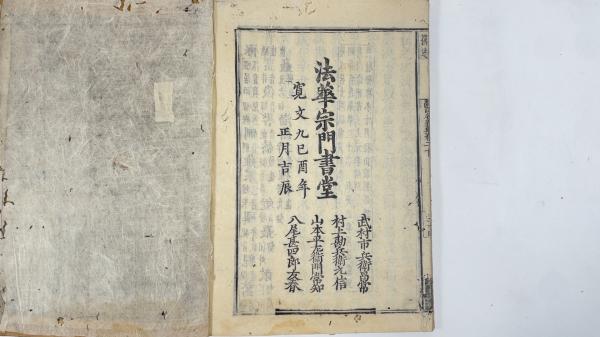 法華宗門書堂
寛文九巳酉年
正月吉辰
武村市兵衛昌常
村上勘兵衛元信
山本平左衛門常知
八尾甚四郎友春